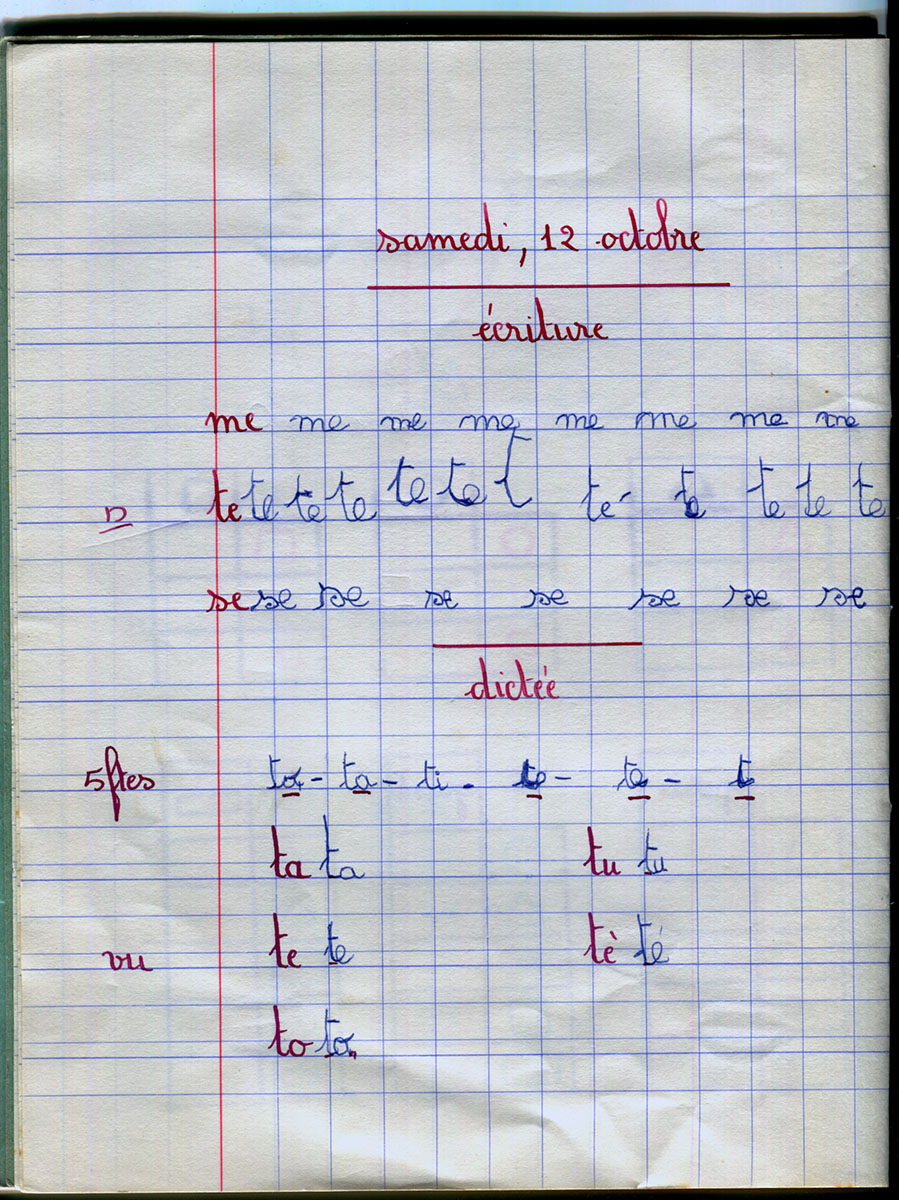 samedi, 12 octobre
écriture
me me me me me me me me
D te te te te te te t té te te te te
se se se se se se se se
dictée
5ftes ta - ta - ti - te - te - t
ta ta tu tu
vu te te tè té
to to